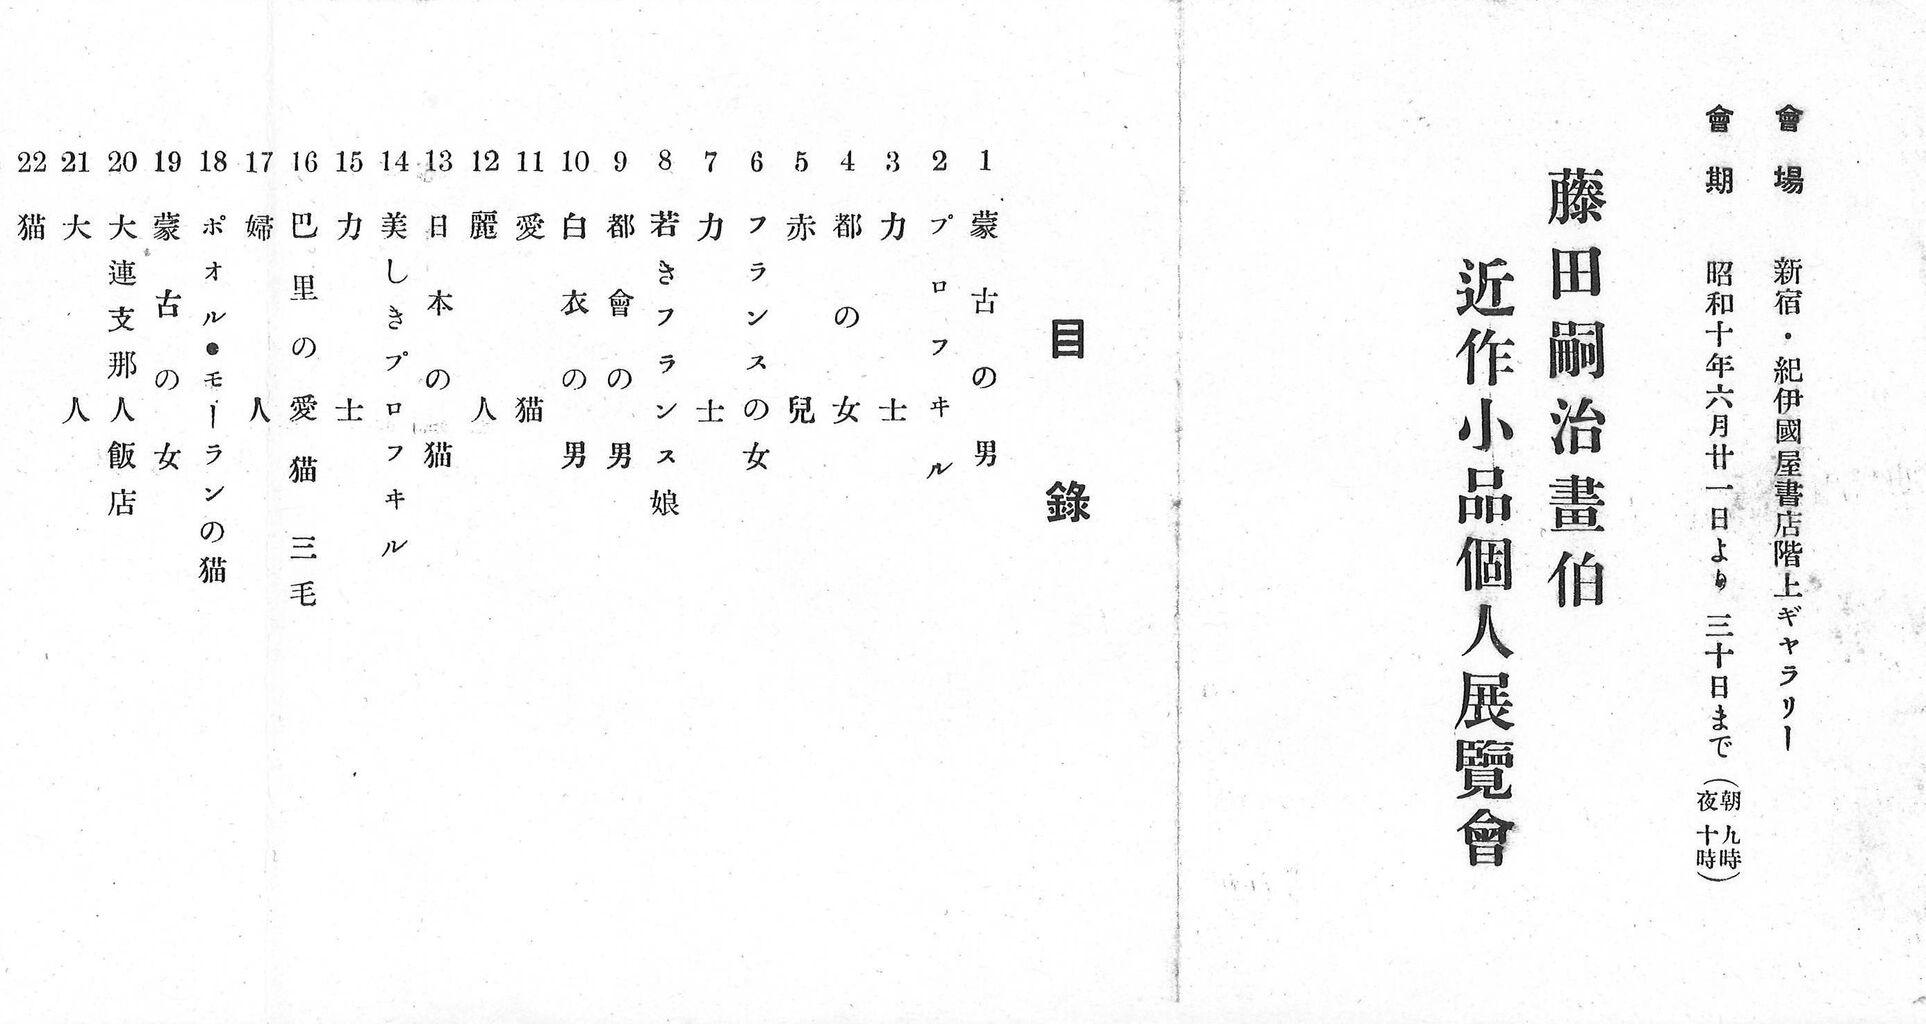 會場　新宿・紀伊國屋書店階上ギャラリー
會期　昭和十年六月廿一日より三十日まで（朝九時夜十時）
藤田嗣治畫伯
近作小品個人展覽會
目錄
1 蒙古の男
2 プロフヰル
3 力士
4 都の女
5 赤兒
6 フランスの女
7 力士
8 若きフランス娘
9 都會の男
10 白衣の男
11 愛猫
12 麗人
13 日本の猫
14 美しきプロフヰル
15 力士
16 巴里の愛猫 三毛
17 婦人
18 ポオル●モーランの猫
19 蒙古の女
20 大連支那人飯店
21 大人
22 猫